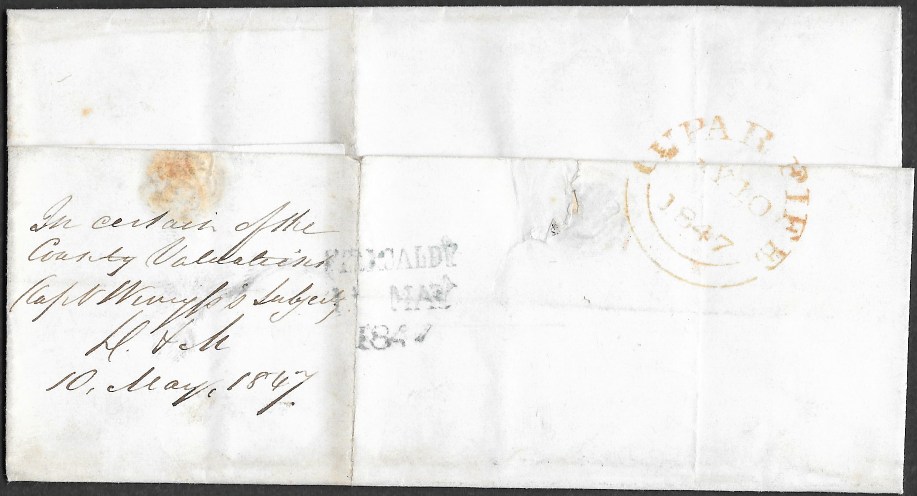 In certain of the
County Valuations
(Capt Wemyss's Subject)
D. & M
10, May, 1847
KIRKCALDY
MAY
1847
CUPAR FIFE
MY 10
1847